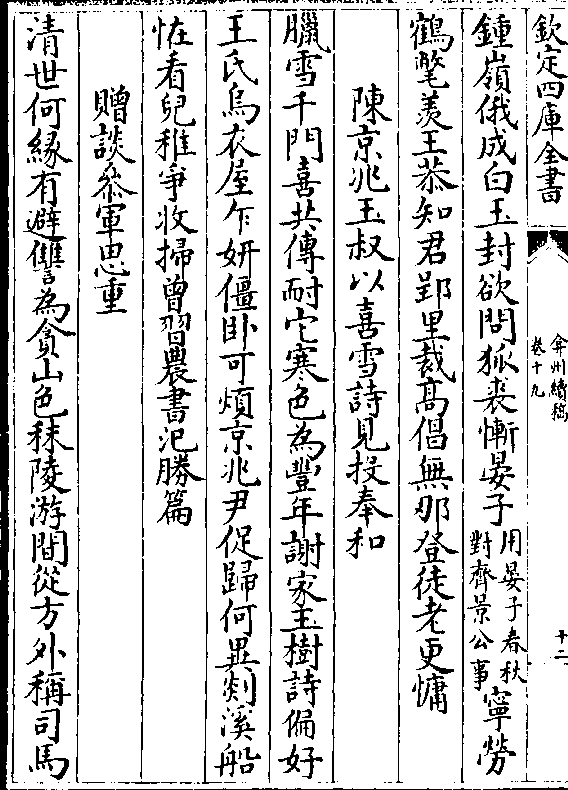 欽定四庫全書
弇州續稿
卷十九
十二
鍾嶺俄成白玉封欲問狐裘慚晏子用晏子春秋對齊景公事寧勞
鶴氅羡王恭知君郢里裁高倡無那登徒老更慵
陳京兆玉叔以喜雪詩見投奉和
臘雪千門喜共傳耐它寒色為豐年謝家玉樹詩偏好
王氏烏衣屋乍妍僵卧可煩京兆尹促歸何異剡溪船
恠看兒稚爭收掃曾習農書汜勝篇
贈談叅軍思重
清世何緣有避讐為貪山色秣陵游閒從方外稱司馬